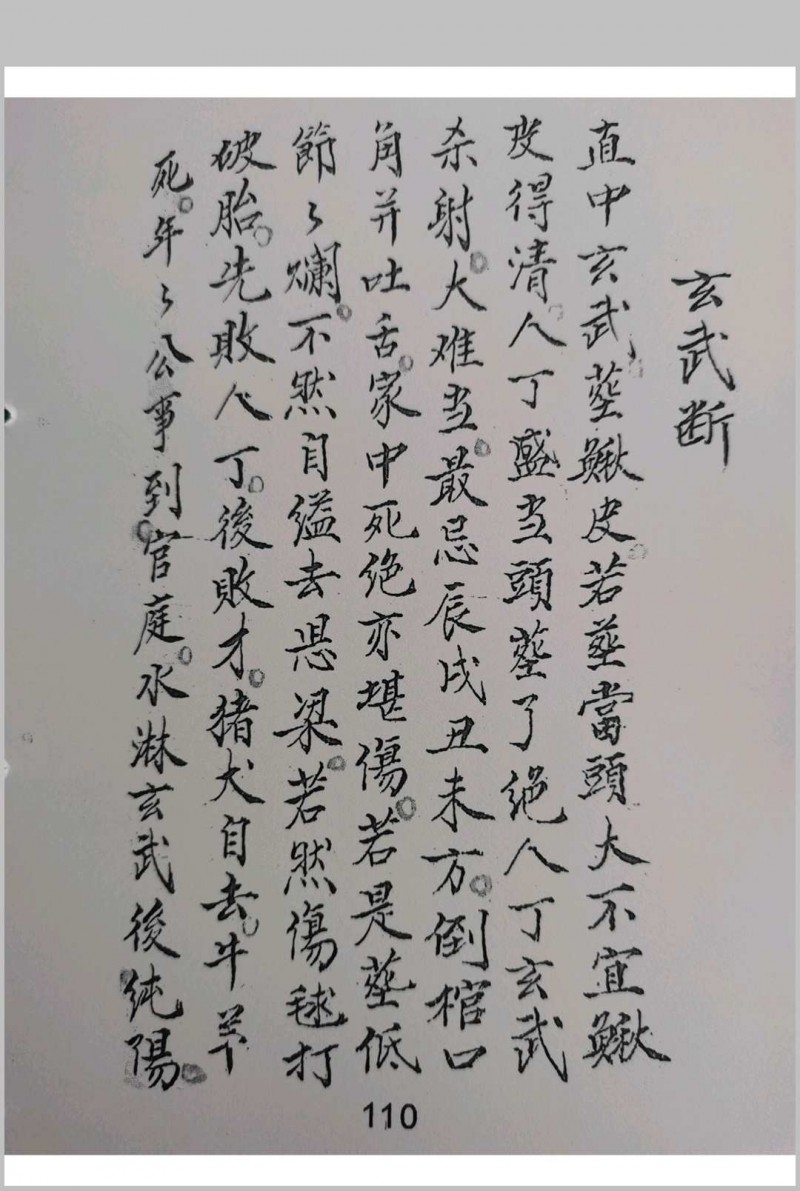 玄武断
直中玄武塟鰍皮若塟當頭大不宜鰍
皮得清人丁盛当頭塟了绝人丁玄武
杀射。大难当。最忌辰戌丑未方。倒棺口
角并吐舌。家中死绝亦堪傷。若是塟低
節々爛。不然自缢去悬梁。若然傷毬打
破胎。先敗人丁。後敗才。猪犬自去。牛羊
死。年々公事到官庭。水淋玄武後纯陽。
110